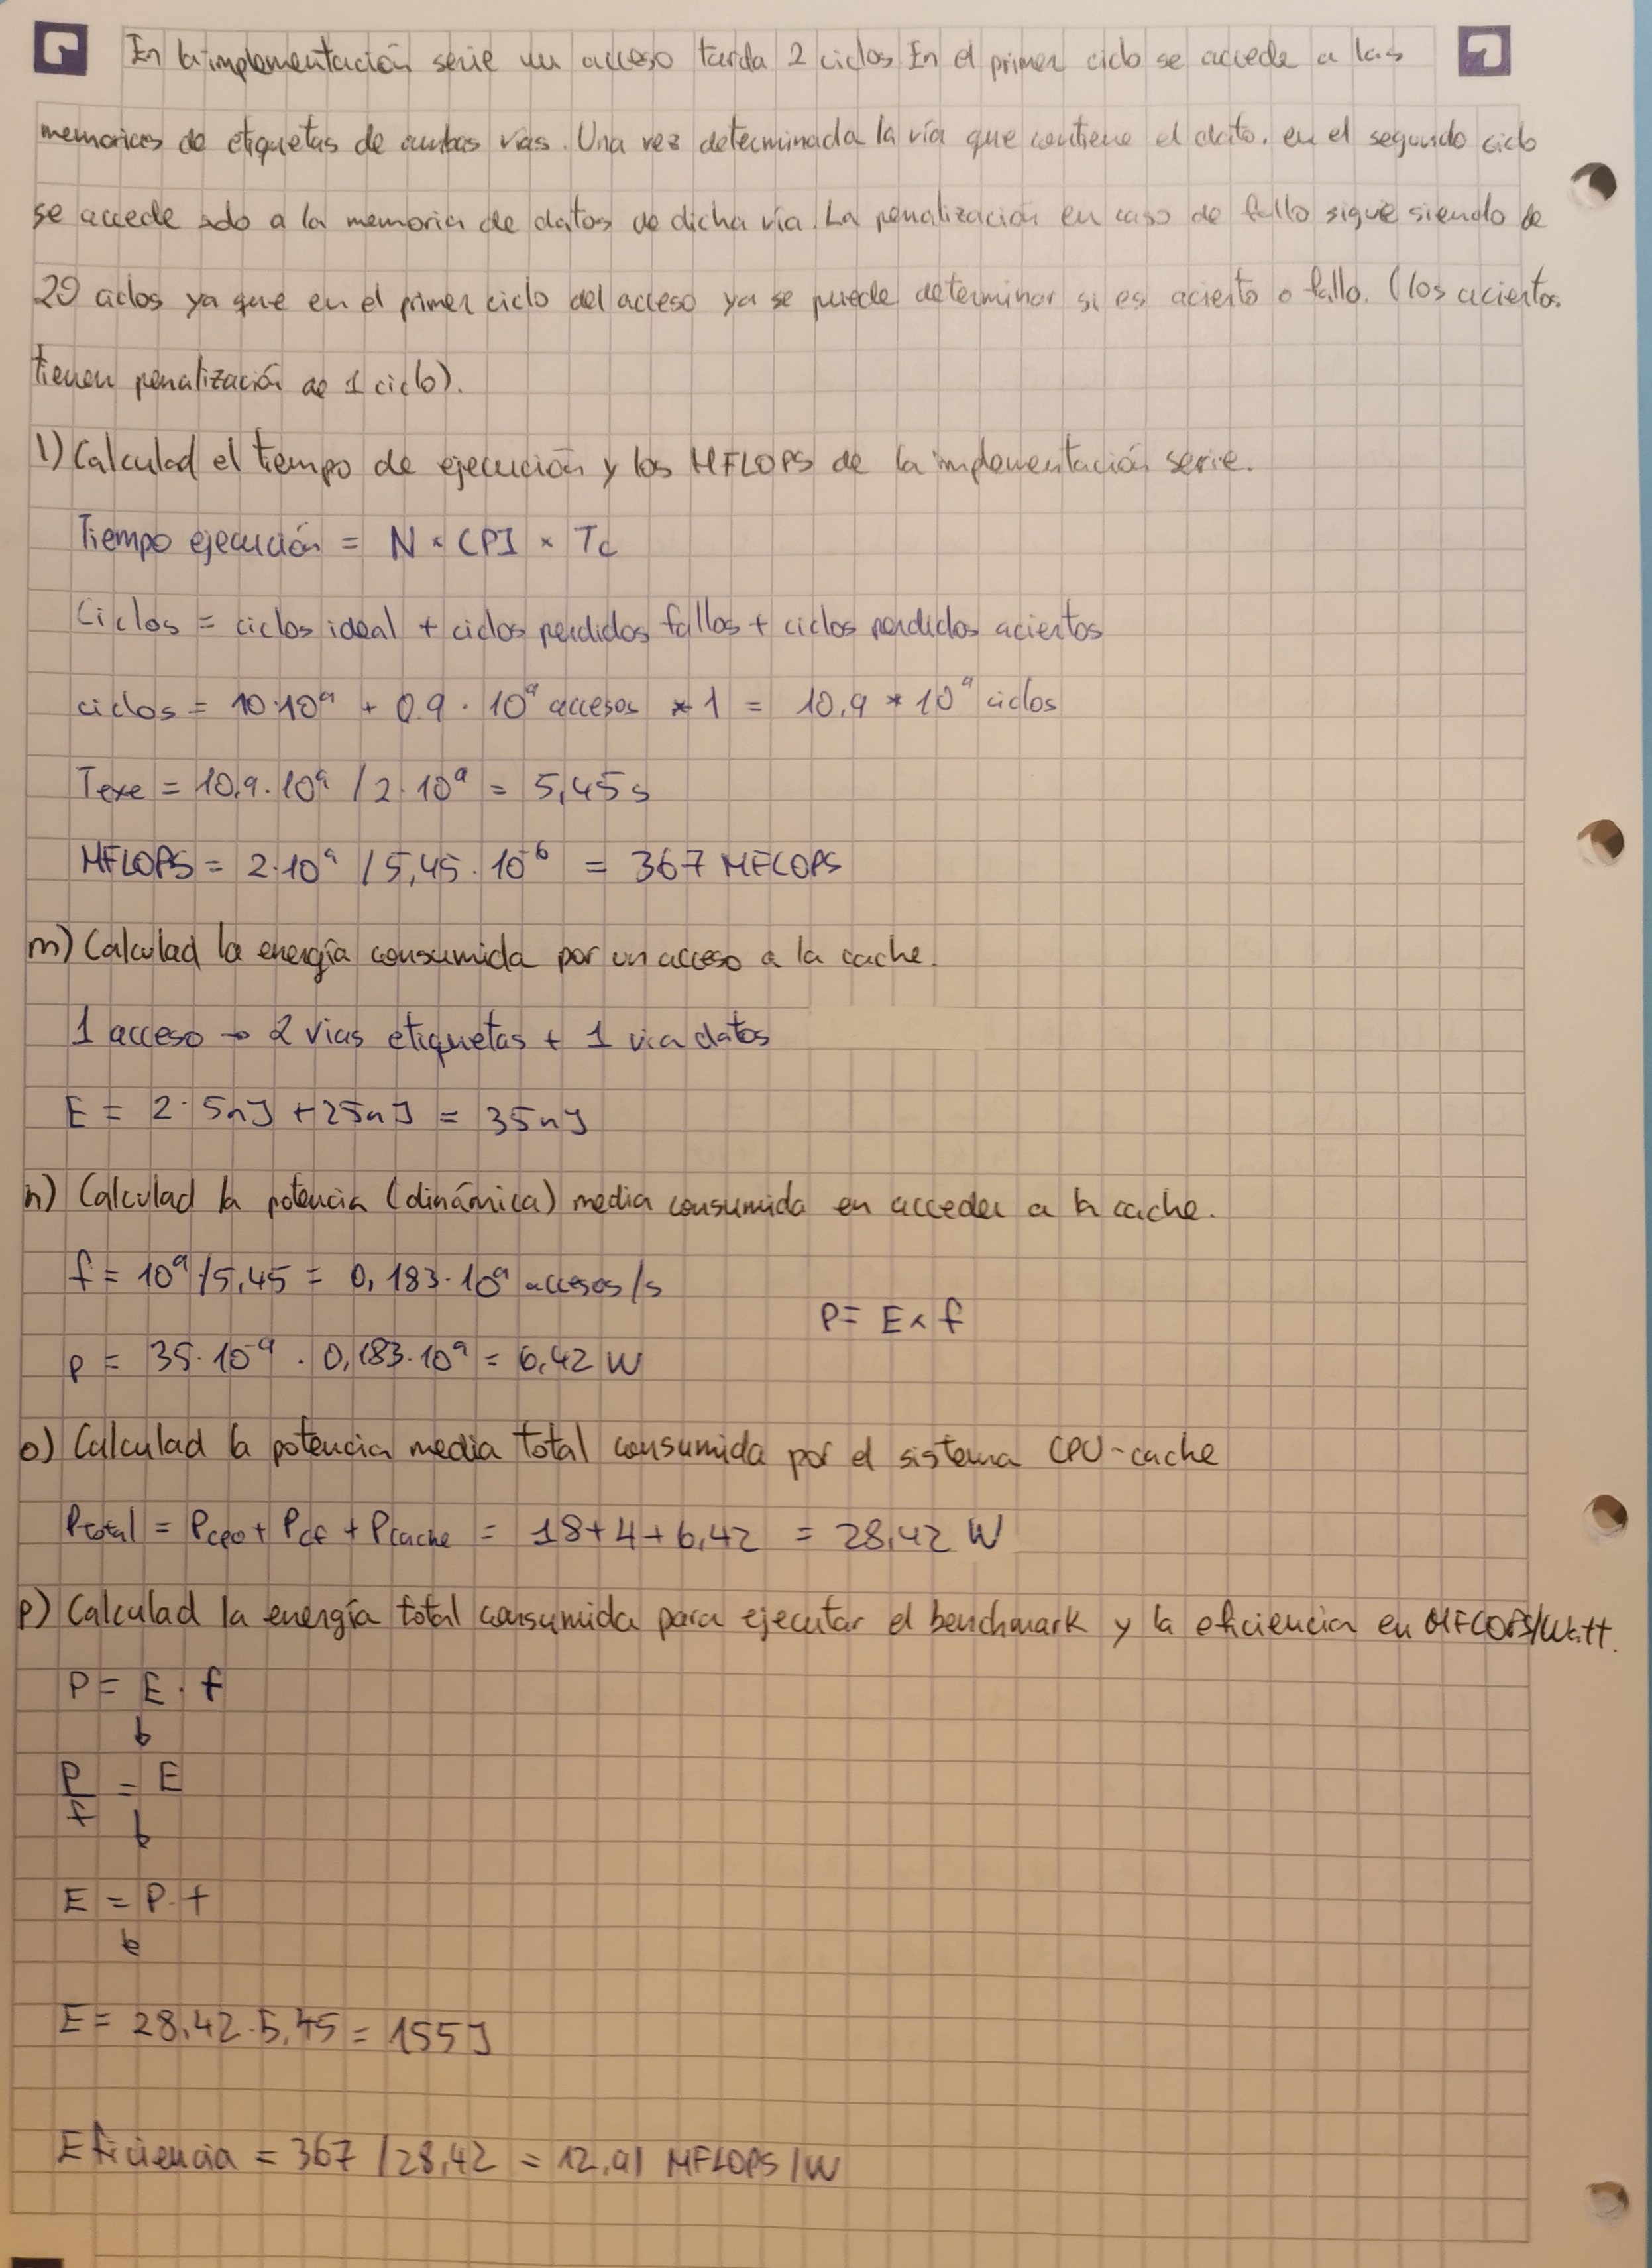 En la implementación serie un acceso tarda 2 ciclos En el primer ciclo se accede a las
memorias de etiquetas de ambas vías. Una vez determinada la vía que contiene el dato, en el segundo ciclo
se accede solo a la memoria de datos de dicha vía. La penalización en caso de fallo sigue siendo de
20 ciclos ya que en el primer ciclo del acceso ya se puede determinar si es acierto o fallo. (los aciertos
tienen penalización de 1 ciclo).
l) Calculad el tiempo de ejecución y los MFLOPS de la implementación serie.
Tiempo ejecución = N × CPI × Tc
Ciclos = ciclos ideal + ciclos perdidos fallos + ciclos perdidos aciertos
ciclos = 10·10⁹ + 0.9 · 10⁹ accesos * 1 = 10,9 * 10⁹ ciclos
Texe = 10,9·10⁹ / 2·10⁹ = 5,45 s
MFLOPS = 2·10⁹ / 5,45·10⁻⁶ = 367 MFLOPS
m) Calculad la energía consumida por un acceso a la cache.
1 acceso → 2 vias etiquetas + 1 via datos
E = 2·5nJ + 25nJ = 35nJ
n) Calculad la potencia (dinámica) media consumida en acceder a la cache.
f = 10⁹/5,45 = 0,183·10⁹ accesos/s
P = E × f
P = 35·10⁻⁹ · 0,183·10⁹ = 6,42 W
o) Calculad la potencia media total consumida por el sistema CPU-cache
Ptotal = Pcpu + Pcf + Pcache = 18+4+6,42 = 28,42 W
p) Calculad la energía total consumida para ejecutar el benchmark y la eficiencia en MFLOPS/Watt.
P = E · f
↓
P/f = E
↓
E = P·t
↓
E = 28,42·5,45 = 155J
Eficiencia = 367 / 28,42 = 12,91 MFLOPS/W